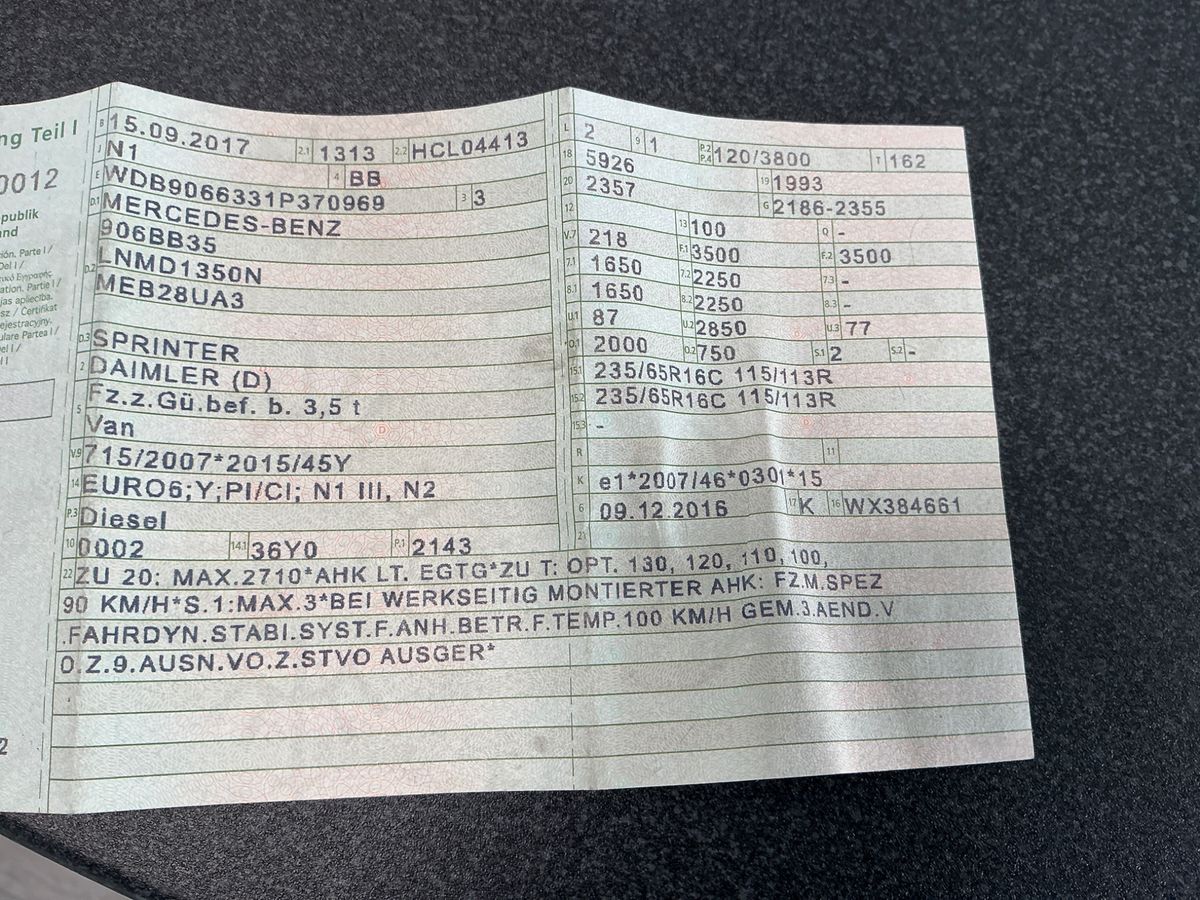 ng Teil I
0012
publik
and
ción. Parte I /
Del I /
ation. Partie I /
jas apliecība.
sz / Certifikat
rejestracyjny.
ulare Partea I /
el I /
I I
2
B 15.09.2017 2.1 1313 2.2 HCL04413
J N1 4 BB
E WDB9066331P370969 3 3
D.1 MERCEDES-BENZ
906BB35
D.2 LNMD1350N
MEB28UA3
D.3 SPRINTER
2 DAIMLER (D)
5 Fz.z.Gü.bef. b. 3,5 t
Van
V.9 715/2007*2015/45Y
14 EURO6;Y;PI/CI; N1 III, N2
P.3 Diesel
10 0002 14.1 36Y0 P.1 2143
L 2 9 1 P.2 P.4 120/3800 T 162
18 5926 19 1993
20 2357 G 2186-2355
12 13 100 Q -
V.7 218 F.1 3500 F.2 3500
7.1 1650 7.2 2250 7.3 -
8.1 1650 8.2 2250 8.3 -
U.1 87 U.2 2850 U.3 77
O.1 2000 O.2 750 S.1 2 S.2 -
15.1 235/65R16C 115/113R
15.2 235/65R16C 115/113R
15.3 -
R 11
K e1*2007/46*0301*15
6 09.12.2016 17 K 16 WX384661
21
22 ZU 20: MAX.2710*AHK LT. EGTG*ZU T: OPT. 130, 120, 110, 100,
90 KM/H*S.1:MAX.3*BEI WERKSEITIG MONTIERTER AHK: FZ.M.SPEZ
.FAHRDYN.STABI.SYST.F.ANH.BETR.F.TEMP.100 KM/H GEM.3.AEND.V
O.Z.9.AUSN.VO.Z.STVO AUSGER*